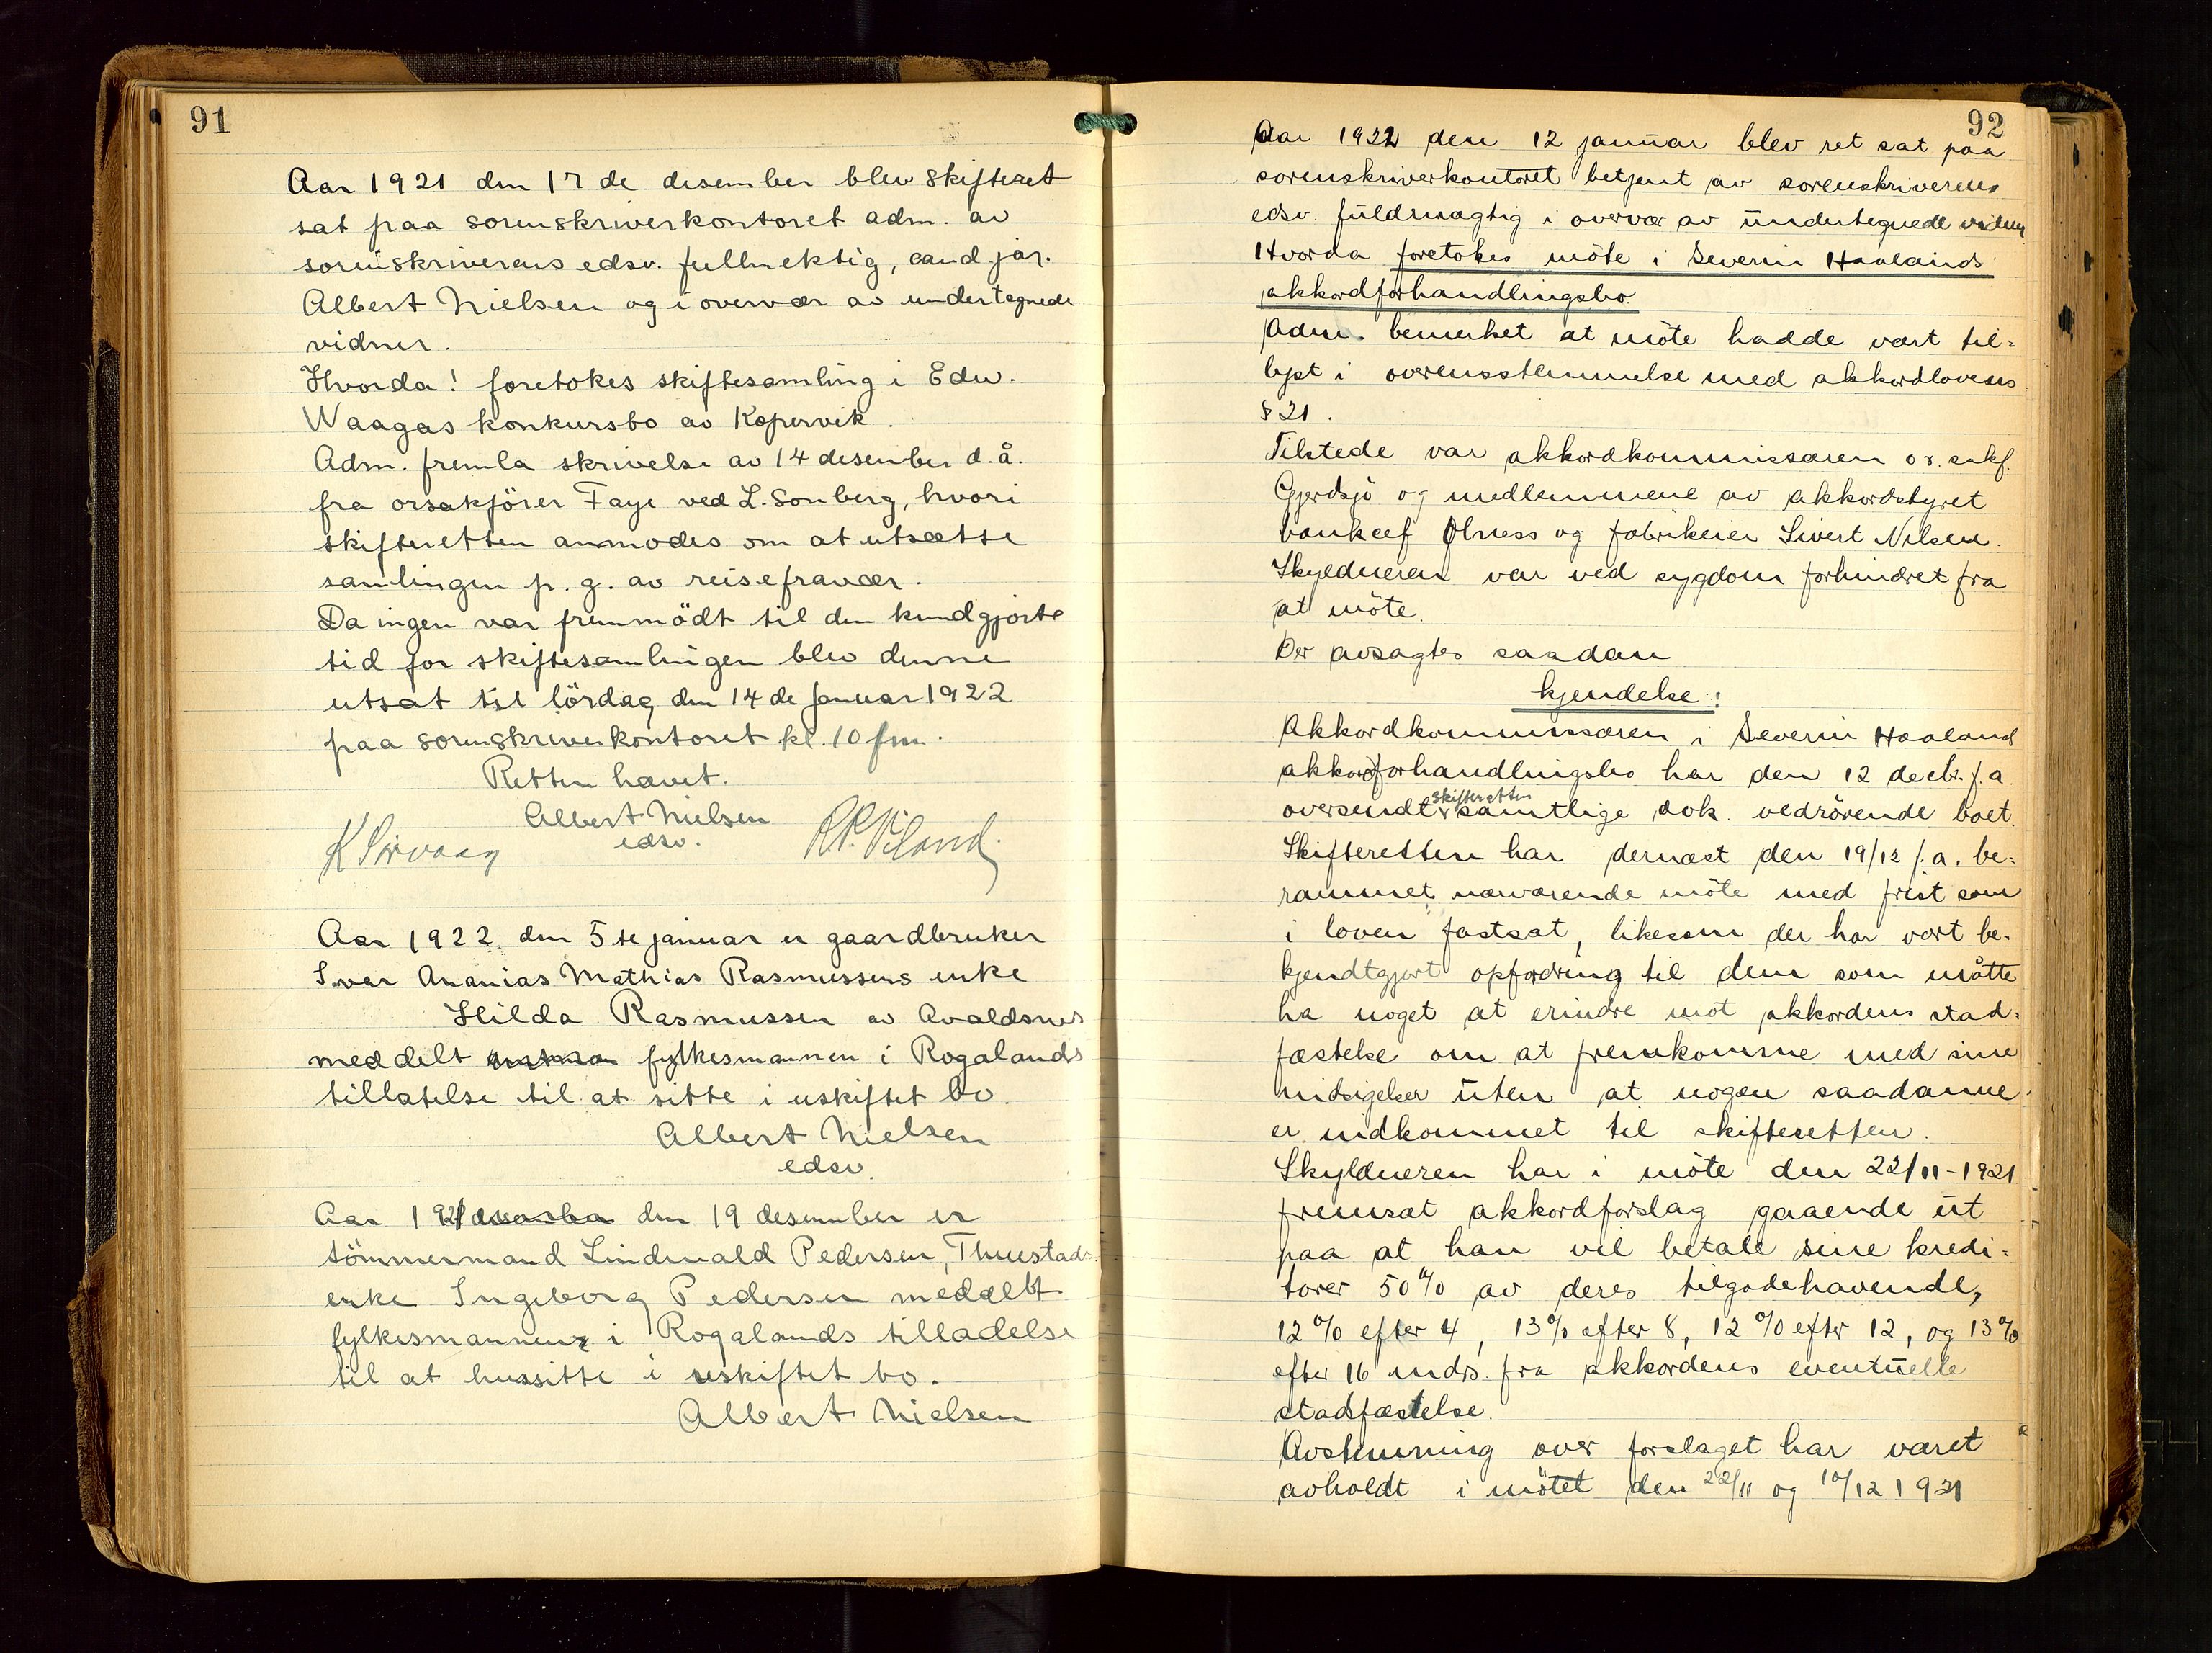 91
Aar 1921 den 17 de desember blev skifteret
sat paa sorenskriverkontoret adm. av
sorenskriverens edsv. fullmektig, cand. jur.
Albert Nielsen og i overvær av undertegnede
vidner.
Hvorda! foretokes skiftesamling i Edw.
Waagas konkursbo av Kopervik.
Adm. fremla skrivelse av 14 desember d.å.
fra orsakförer Faye ved L. Sonberg, hvori
skifteretten anmodes om at utsætte
samlingen p. g. av reisefravær.
Da ingen var fremmödt til den kundgjorte
tid for skiftesamlingen blev denne
utsat til lördag den 14 de januar 1922
paa sorenskriverkontoret kl. 10 fm.
Retten hævet.
Albert Nielsen
edsv.
Aar 1922 den 5 te januar er gaardbruker
Ivar Ananias Mathias Rasmussens enke
Hilda Rasmussen av Avaldsnes
meddelt fylkesmannen i Rogalands
tillatelse til at sitte i uskiftet bo.
Albert Nielsen
edsv.
Aar 1921 den 19 desember er
tömmermand Lindvald Pedersen, Thuestads
enke Ingeborg Pedersen meddelt
fylkesmannens i Rogalands tilladelse
til at hensitte i uskiftet bo.
Albert Nielsen
92
Aar 1922 den 12 januar blev ret sat paa
sorenskriverkontoret betjent av sorenskriverens
edsv. fuldmægtig i overvær av undertegnede vidner
Hvorda foretokes möte i Severin Haalands
akkordforhandlingsbo.
Adm. bemerket at möte hadde vært til-
lyst i overensstemmelse med akkordlovens
§ 21.
Tilstede var akkordkommissæren o.r. sakf.
Gjerdsjö og medlemmene av akkordstyret
banksef Olness og fabrikeier Sivert Nilsen.
Skyldneren var ved sygdom forhindret fra
at möte.
Der avsagtes saadan
kjendelse:
Akkordkommissæren i Severin Haaland
akkordforhandlingsbo har den 12 decbr. f.a.
oversendt skifteretten samtlige dok. vedrörende boet.
Skifteretten har dernæst den 19/12 f.a. be-
rammet nærværende möte med frist som
i loven fastsat, likesom der har vært be-
kjendtgjort opfordring til dem som måtte
ha noget at erindre mot akkordens stad-
fæstelse om at fremkomme med sine
indsigelser uten at nogen saadanne
er indkommet til skifteretten.
Skyldneren har i möte den 22/11-1921
fremsat akkordforslag gaaende ut
paa at han vil betale sine kredi-
torer 50% av deres tilgodehavende,
12% efter 4, 13% efter 8, 12% efter 12, og 13%
efter 16 mdrs. fra akkordens eventuelle
stadfæstelse.
Avstemning over forslaget har været
avholdt i mötet den 22/11 og 10/12 1921